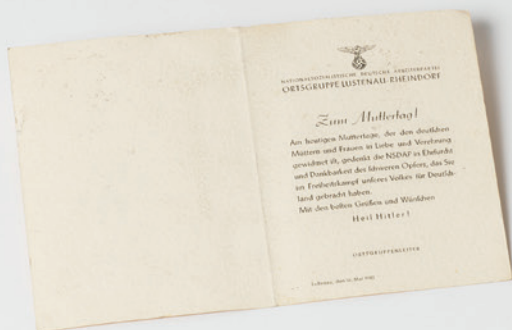 NATIONALSOZIALISTISCHE DEUTSCHE ARBEITERPARTEI
ORTSGRUPPE LUSTENAU-RHEINDORF
Zum Muttertag!
Am heutigen Muttertage, der den deutschen
Müttern und Frauen in Liebe und Verehrung
gewidmet ist, gedenkt die NSDAP in Ehrfurcht
und Dankbarkeit des schweren Opfers, das Sie
im Freiheitskampf unseres Volkes für Deutsch-
land gebracht haben.
Mit den besten Grüßen und Wünschen
Heil Hitler!
ORTSGRUPPENLEITER
Lustenau, den Mai